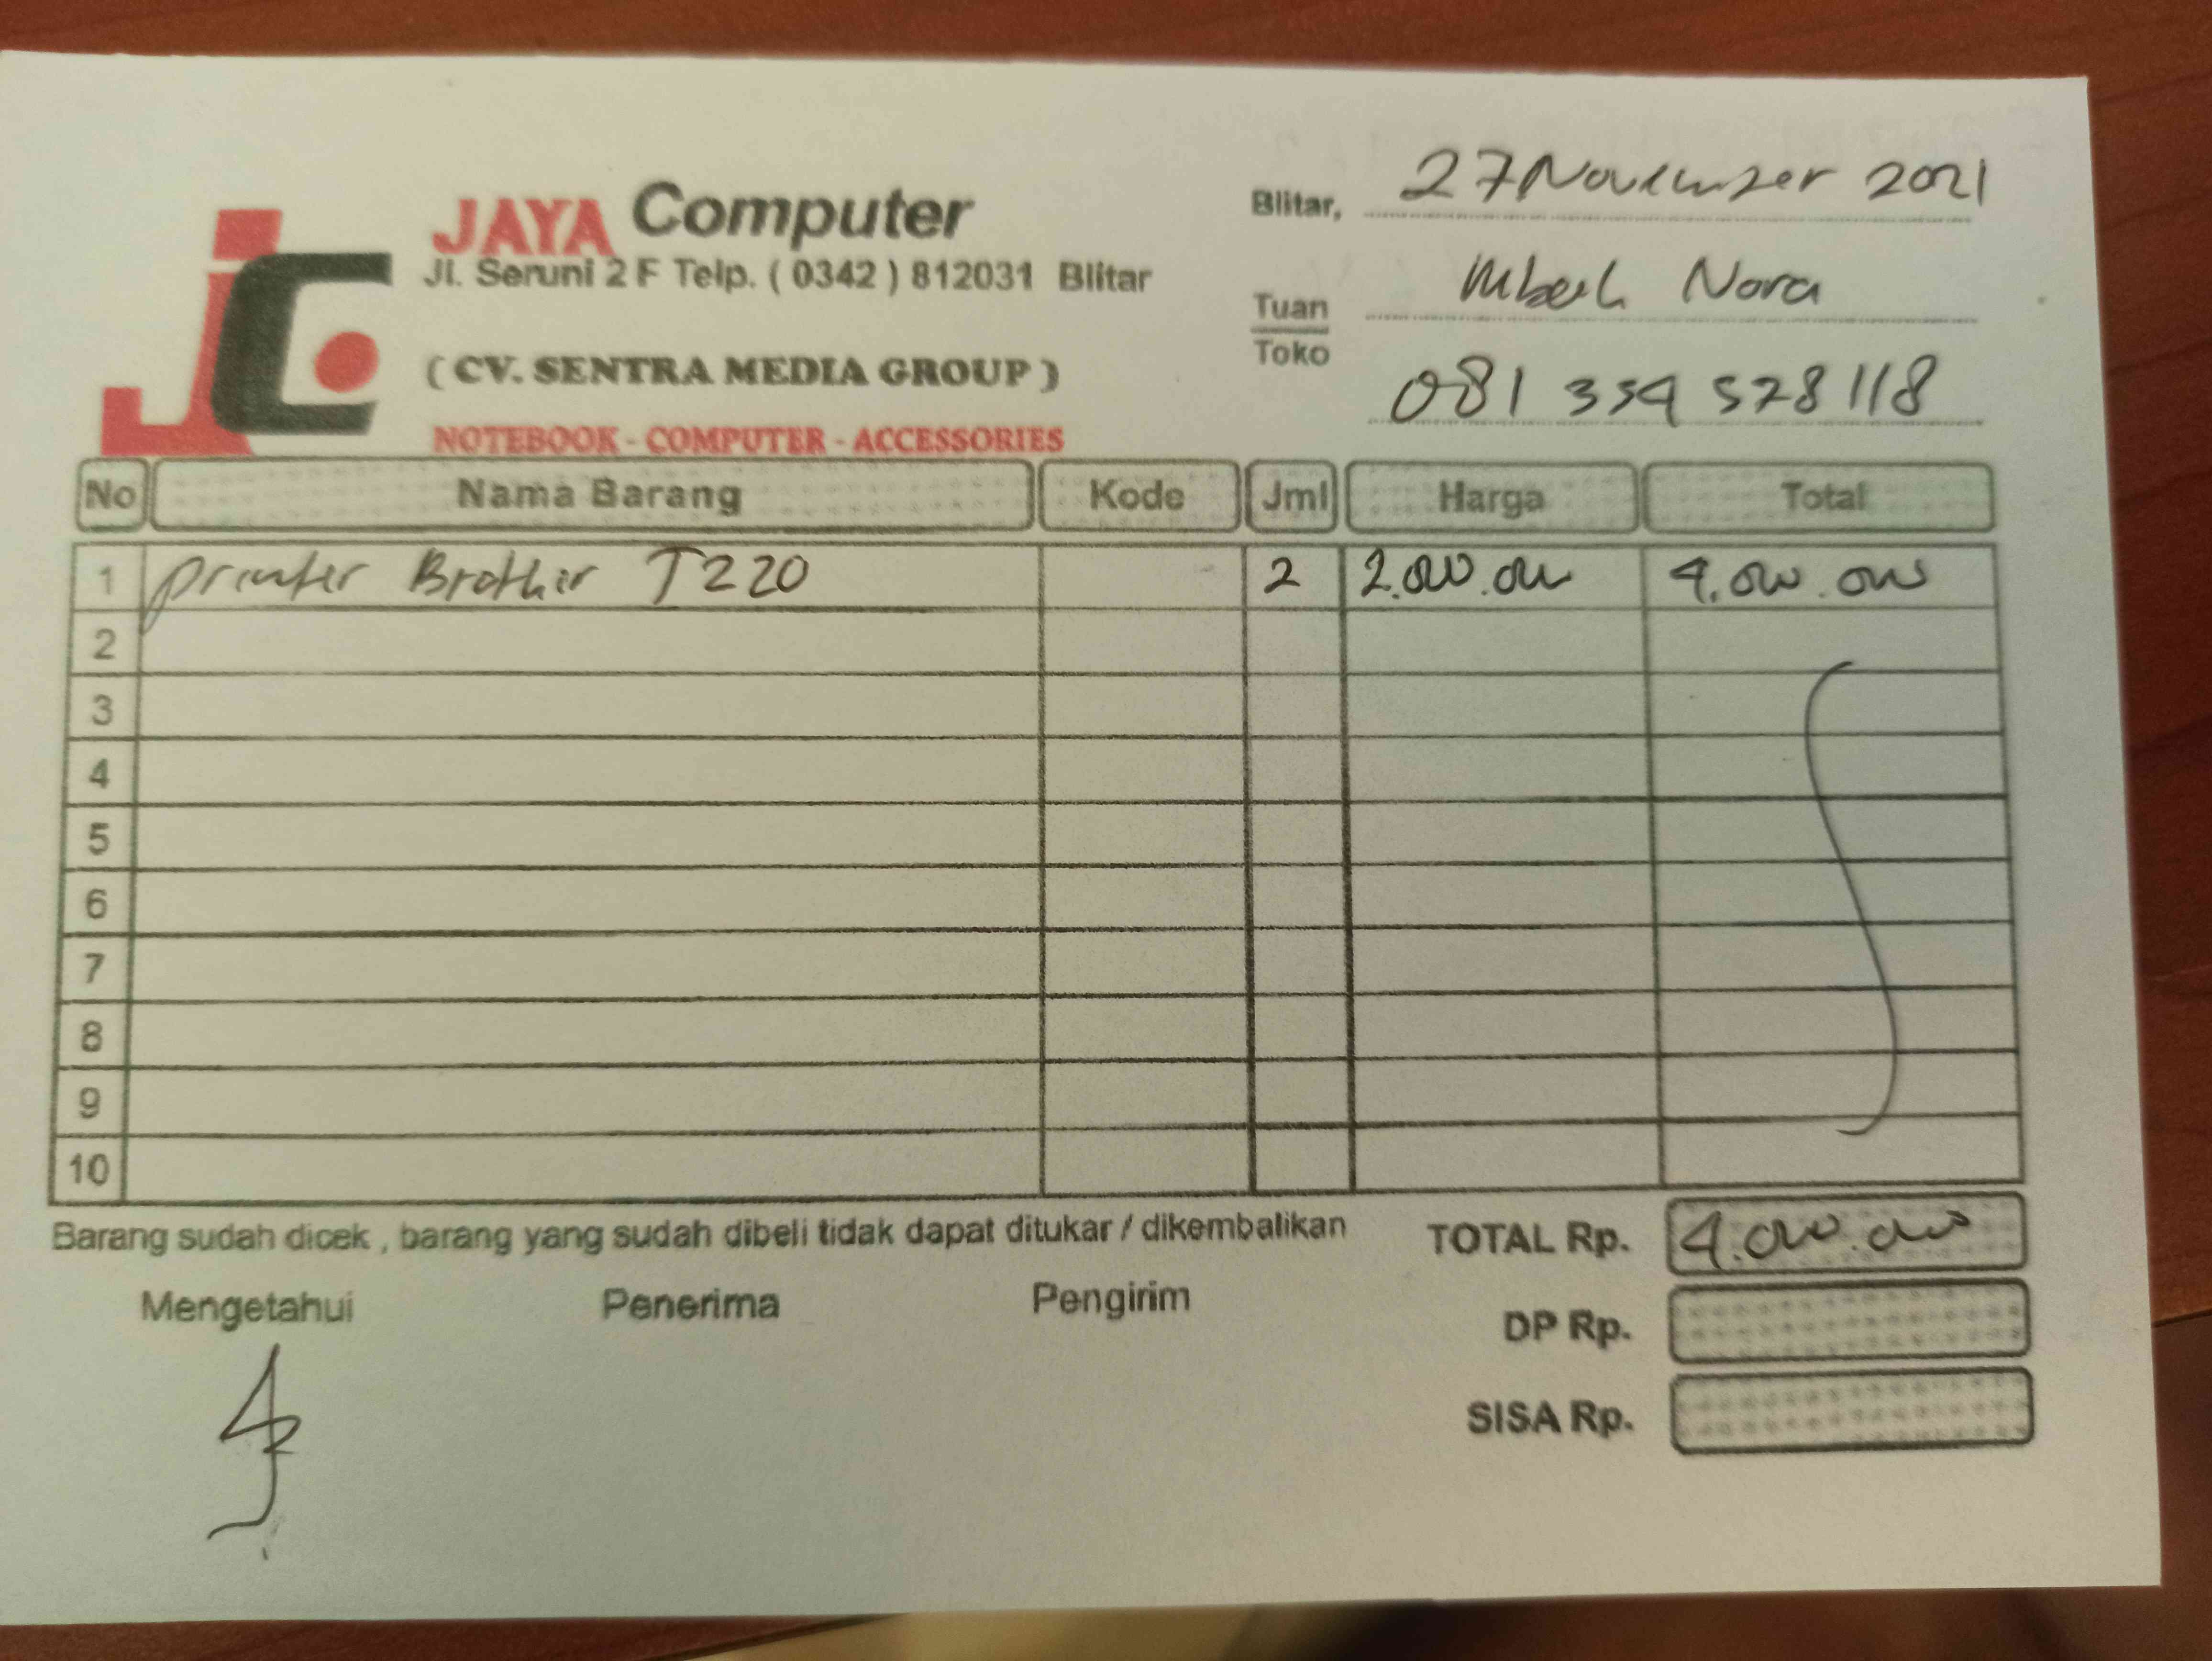 JC
JAYA Computer
Jl. Seruni 2 F Telp. ( 0342 ) 812031 Blitar
( CV. SENTRA MEDIA GROUP )
NOTEBOOK - COMPUTER - ACCESSORIES
Blitar, 27 November 2021
Tuan Mbak Nora
Toko
081 334 578 118
No Nama Barang Kode Jml Harga Total
1 printer Brother T220 2 2.000.000 4.000.000
2
3
4
5
6
7
8
9
10
Barang sudah dicek , barang yang sudah dibeli tidak dapat ditukar / dikembalikan
TOTAL Rp. 4.000.000
Mengetahui Penerima Pengirim
DP Rp.
SISA Rp.